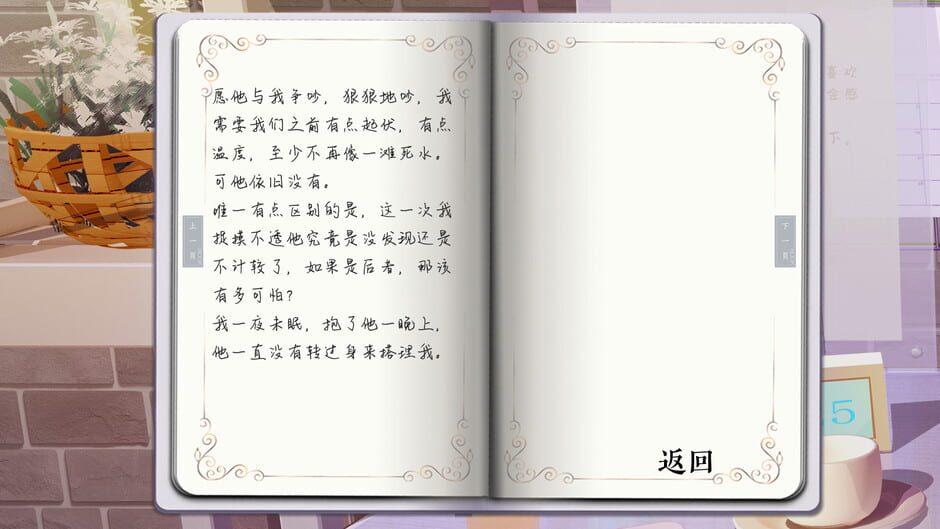 愿他与我争吵，狠狠地吵，我
需要我们之前有点起伏，有点
温度，至少不再像一滩死水。
可他依旧没有。
唯一有点区别的是，这一次我
捉摸不透他究竟是没发现还是
不计较了，如果是后者，那该
有多可怕？
我一夜未眠，抱了他一晚上，
他一直没有转过身来搭理我。
上一页
下一页
返回
喜欢
会感
下。
5